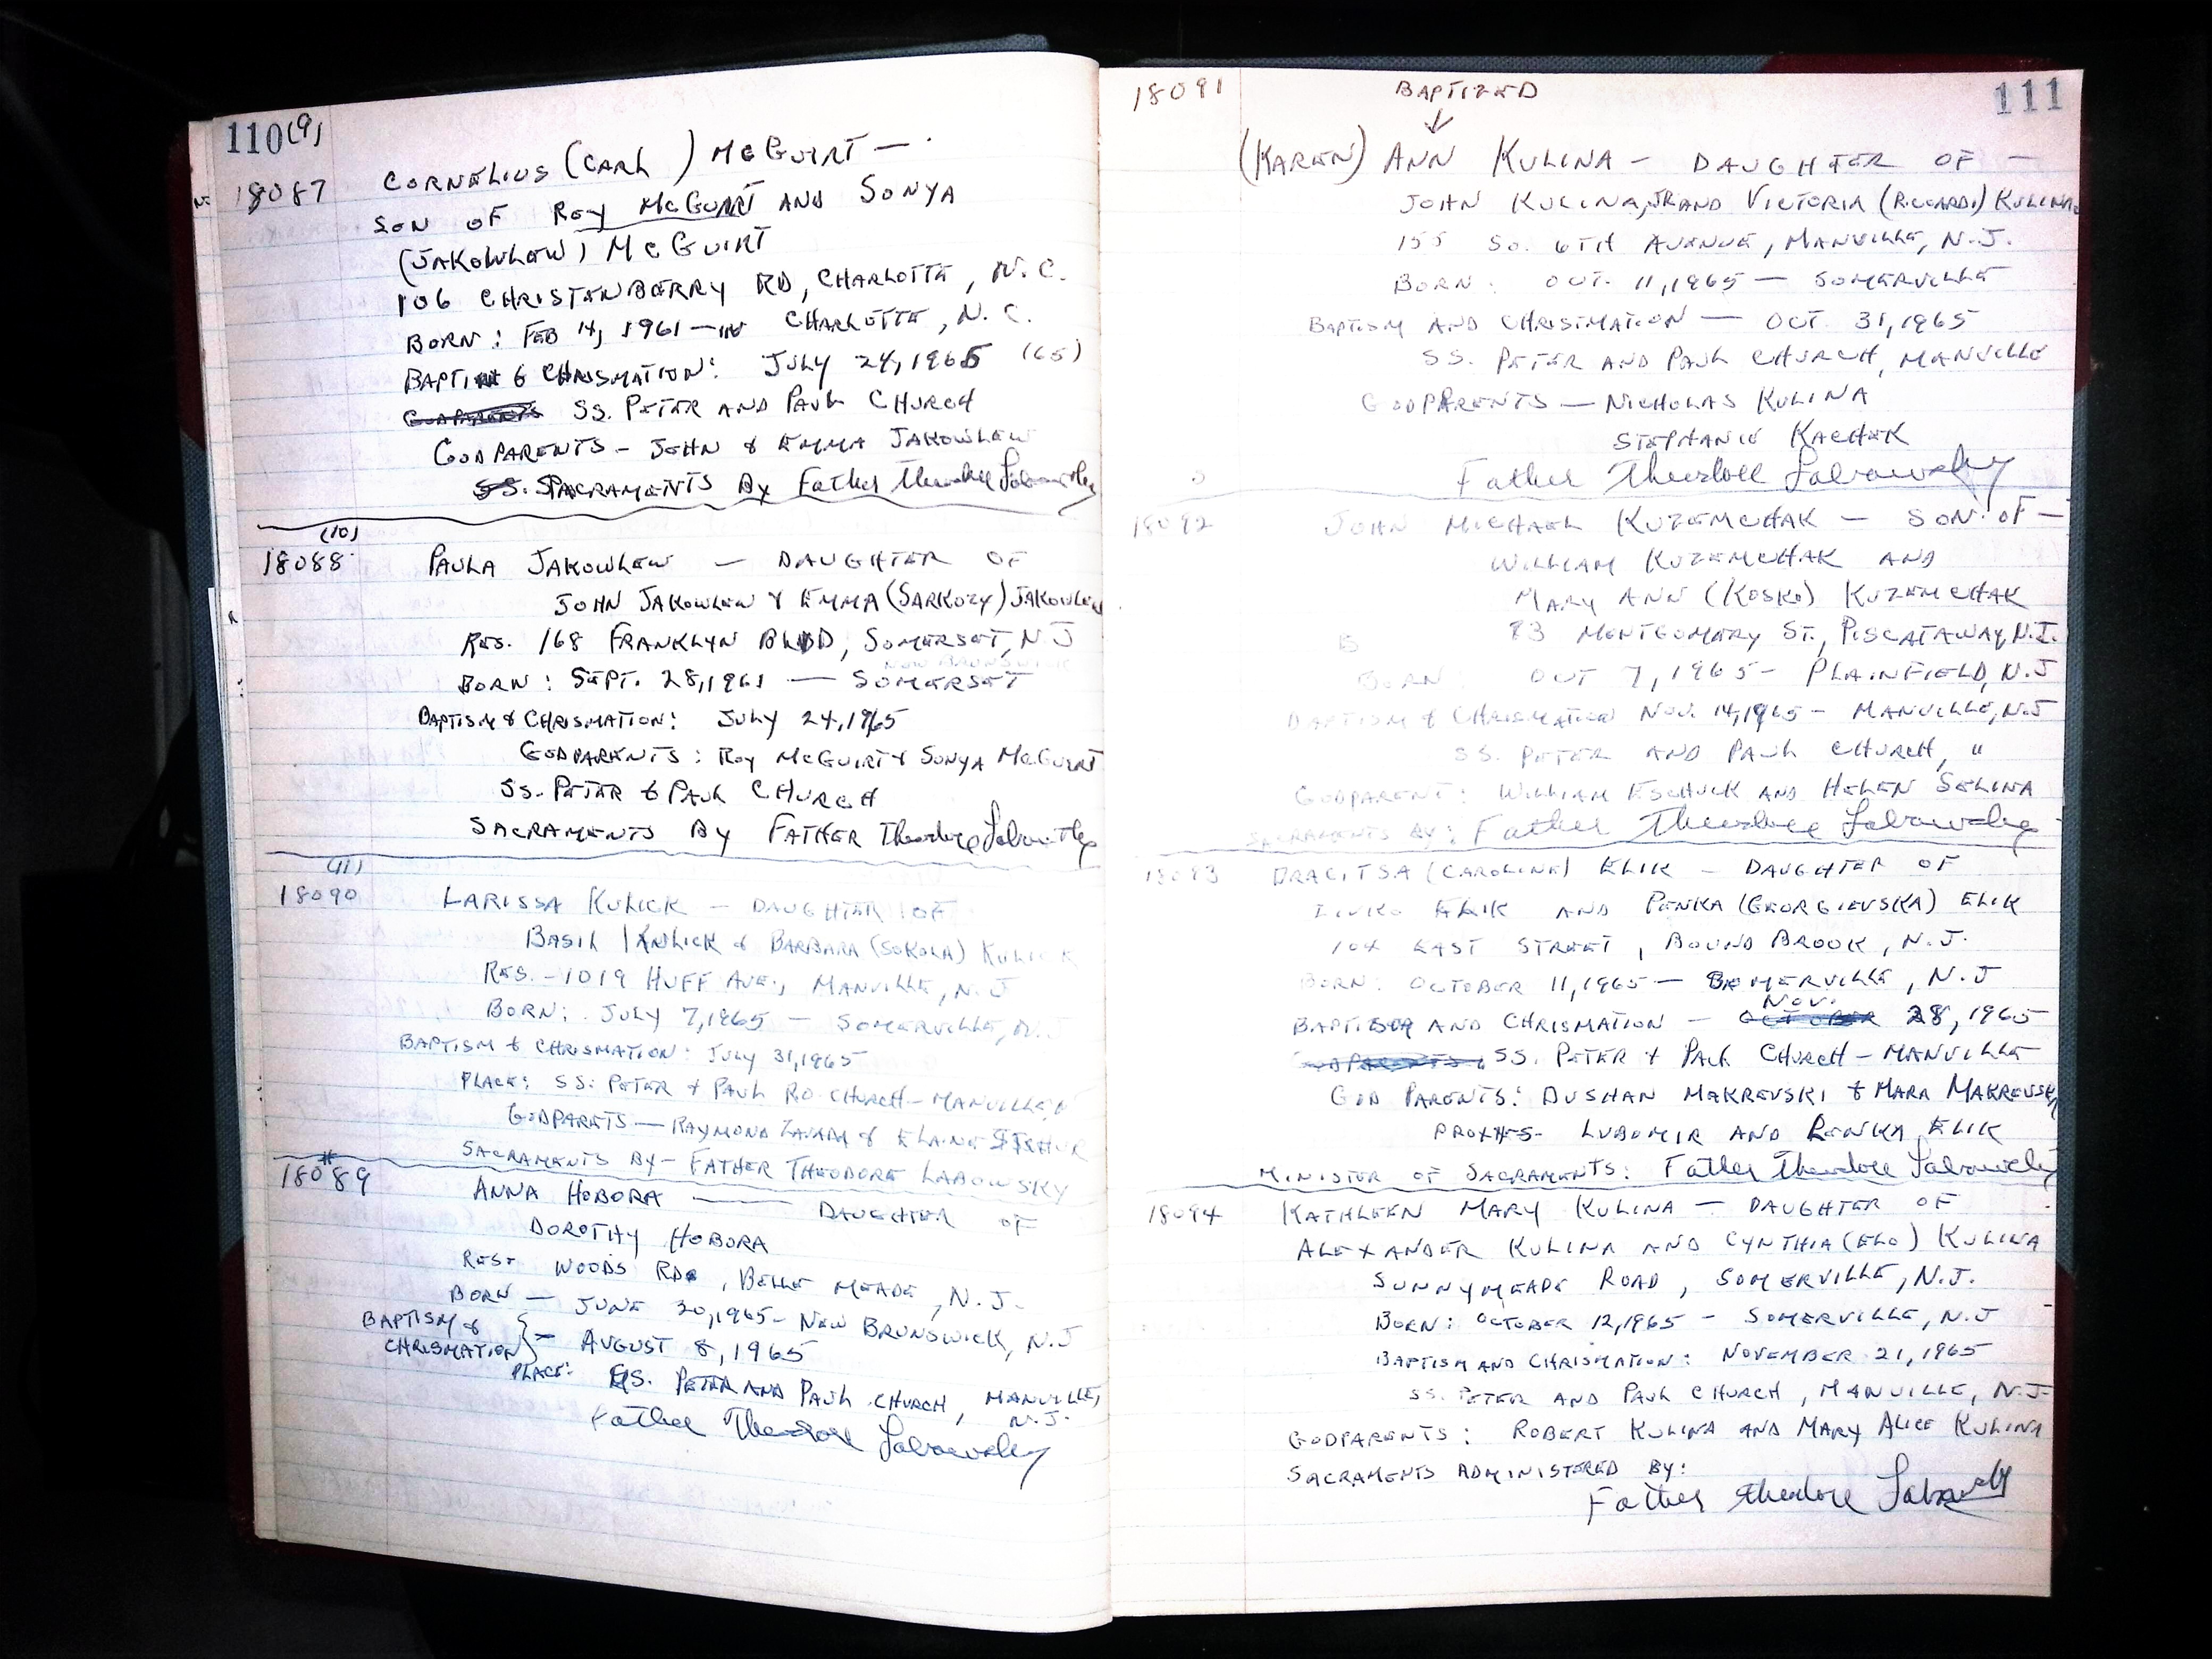 110 (9)
18087 CORNELIUS (CARL ) MCGUIRT — .
SON OF ROY MCGUIRT AND SONYA
(JAKOWLEW) MCGUIRT
106 CHRISTENBERRY RD, CHARLOTTE, N.C.
BORN: FEB 14, 1961 — IN CHARLOTTE, N.C.
& CHRISMATION: JULY 24, 1965 (65)
SS. PETER AND PAUL CHURCH
GODPARENTS - JOHN & EMMA JAKOWLEW
SACRAMENTS BY Father Theodore Labowsky
(10)
18088 PAULA JAKOWLEW — DAUGHTER OF
JOHN JAKOWLEW & EMMA (SARKOZY) JAKOWLEW
RES. 168 FRANKLYN BLVD, SOMERSET, N.J
NEW BRUNSWICK
BORN: SEPT. 28, 1961 — SOMERSET
BAPTISM & CHRISMATION: JULY 24, 1965
GODPARENTS: ROY MCGUIRT & SONYA MCGUIRT
SS. PETER & PAUL CHURCH
SACRAMENTS BY FATHER Theodore Labowsky
(11)
18090 LARISSA KULICK — DAUGHTER OF
BASIL KULICK & BARBARA (SOKOLA) KULICK
RES. - 1019 HUFF AVE., MANVILLE, N.J
BORN: JULY 7, 1965 — SOMERVILLE, N.J.
BAPTISM & CHRISMATION: JULY 31, 1965
PLACE: SS. PETER & PAUL RO CHURCH - MANVILLE,
GODPARETS — RAYMOND & ELAINE
SACRAMENTS BY - FATHER THEODORE LABOWSKY
18089 ANNA HOBORA — DAUGHTER OF
DOROTHY HOBORA
WOODS RD, BELLE MEADE, N.J.
BORN — JUNE 30, 1965 - NEW BRUNSWICK, N.J
BAPTISM &
CHRISMATION } — AUGUST 8, 1965
PLACE: SS. PETER AND PAUL CHURCH, MANVILLE,
N.J.
Father Theodore Labowsky
111
18091 BAPTIZED
(KAREN) ANN KULINA — DAUGHTER OF —
JOHN KULINA, JR AND VICTORIA (RICCARDI) KULINA
155 SO. 6TH AVENUE, MANVILLE, N.J.
BORN: OCT. 11, 1965 — SOMERVILLE
BAPTISM AND CHRISTMATION — OCT. 31, 1965
SS. PETER AND PAUL CHURCH, MANVILLE
GODPARENTS — NICHOLAS KULINA
STEPHANIE KACHEK
Father Theodore Labowsky
18092 JOHN MICHAEL KUZEMCHAK — SON OF —
WILLIAM KUZEMCHAK AND
MARY ANN (KOSKO) KUZEMCHAK
83 MONTGOMERY ST., PISCATAWAY, N.J.
BORN OCT 7, 1965 - PLAINFIELD, N.J
BAPTISM & CHRISMATION NOV. 14, 1965 - MANVILLE, N.J
SS. PETER AND PAUL CHURCH, "
GODPARENT: WILLIAM ESCHUCK AND HELEN SELINA
SACRAMENTS BY: Father Theodore Labowsky
18093 DRAGITSA (CAROLINE) ELIK — DAUGHTER OF
ELIK AND PENKA (GEORGIEVSKA) ELIK
104 EAST STREET, BOUND BROOK, N.J.
BORN: OCTOBER 11, 1965 — SOMERVILLE, N.J
NOV.
BAPTISM AND CHRISMATION — OCTOBER 28, 1965
GODPARENTS SS. PETER & PAUL CHURCH — MANVILLE
GOD PARENTS: DUSHAN MAKREVSKI & MARA MAKREVSKI
PROXIES - LUBOMIR AND LENKA ELIK
MINISTER OF SACRAMENTS: Father Theodore Labowsky
18094 KATHLEEN MARY KULINA — DAUGHTER OF
ALEXANDER KULINA AND CYNTHIA (ELO) KULINA
SUNNYMEADE ROAD, SOMERVILLE, N.J.
BORN: OCTOBER 12, 1965 — SOMERVILLE, N.J
BAPTISM AND CHRISMATION: NOVEMBER 21, 1965
SS. PETER AND PAUL CHURCH, MANVILLE, N.J.
GODPARENTS: ROBERT KULINA AND MARY ALICE KULINA
SACRAMENTS ADMINISTERED BY:
Father Theodore Labowsky